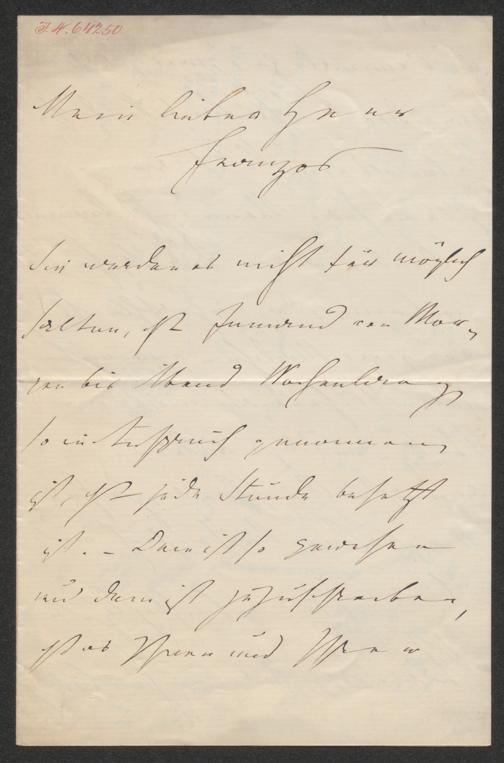 I.N. 64250
Mein lieber Herr
Franzos
Sie werden es nicht für möglich
halten, daß Jemand von Mor-
gen bis Abend Wochenlang
so in Anspruch genommen
ist, daß jede Stunde besetzt
ist. – Dem ist so gewesen
und dem ist zuzuschreiben,
daß es Ihnen und Ihrer